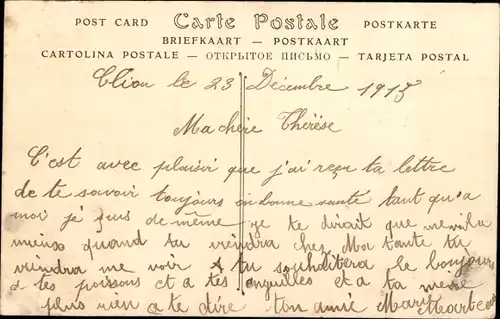 POST CARD Carte Postale POSTKARTE
BRIEFKAART — POSTKAART
CARTOLINA POSTALE — ОТКРЫТОЕ ПИСЬМО — TARJETA POSTAL
Clion le 23 Décembre 1915
Ma chère Thérèse
C'est avec plaisir que j'ai reçu ta lettre
de te savoir toujours en bonne santé tant qu'a
moi je suis de même je te dirait que me voila
mieux quand tu viendra chez Ma tante tu
viendra me voir tu souhaitera le bonjour
a tes poissons et a tes anguilles et a ta mere
plus rien a te dire ton amie Marie